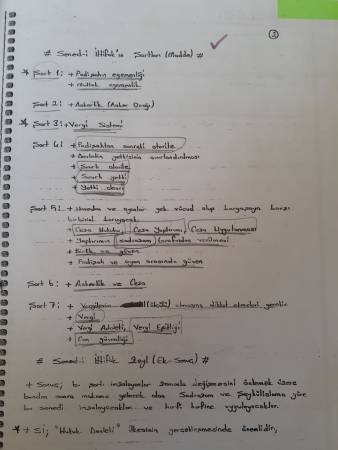 3
# Sened-i İttifak'ın Şartları (Madde) #
* Şart 1: + Padişahın egemenliği
+ mutlak egemenlik
Şart 2: + Askerlik (Asker Ocağı)
* Şart 3: + Vergi Sistemi
Şart 4: + Padişahtan sonraki otorite
+ yetkisinin sınırlandırılması
+ Sınırlı otorite
+ Sınırlı yetki
+ Yetki
Şart 5: + Hanedan ve ayanlar tek vücud olup kargaşaya karşı
birbirini koruyacak
+ Ceza Hukuku, Ceza Yaptırımı, Ceza Uygulanması
+ Yaptırımın sadrazam tarafından verilmesi
+ Birlik ve güven
+ Padişah ve ayan arasında güven
Şart 6: + Askerlik ve Ceza
Şart 7: + Vergilerin dikkat etmeleri gerekir
+ Vergi
+ Vergi Adaleti, Vergi Eşitliği
+ güvenliği
# Sened-i İttifak Zeyl (Ek-Sonuç) #
+ Sonuç; bu şartı imzalayanlar zamanla değişmesini önlemek üzere
bundan sonra makama gelecek olan Sadrazam ve Şeyhülislama göre
bu senedi imzalayacaklar ve harfi harfine uygulayacaklar.
* + Sİ; "Hukuk Devleti" ilkesinin gerçekleşmesinde önemlidir,